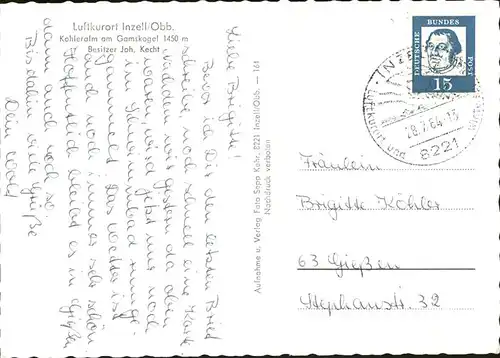 Luftkurort Inzell/Obb.
Kohleralm am Gamskogel 1450 m
Besitzer Joh. Kecht
Liebe Brigitte!
Bevor ich Dir den letzten Brief
schreibe, noch schnell eine Karte
waren, wird jetzt nur noch
im Schwimmbad rumge-
gammelt. Das Wetter ist
auch noch immer sehr schön
Hoffentlich bleibt es in Gießen
dann auch noch so.
Bis dahin viele Grüße
Dein
Aufnahme u. Verlag Foto Sepp Kohr, 8221 Inzell/Obb. — 161
Nachdruck verboten
DEUTSCHE BUNDESPOST
15
INZELL
Luftkurort und
28.7.64-15
8221
Fräulein
Brigitte Köhler
63 Gießen
Stephanstr. 32